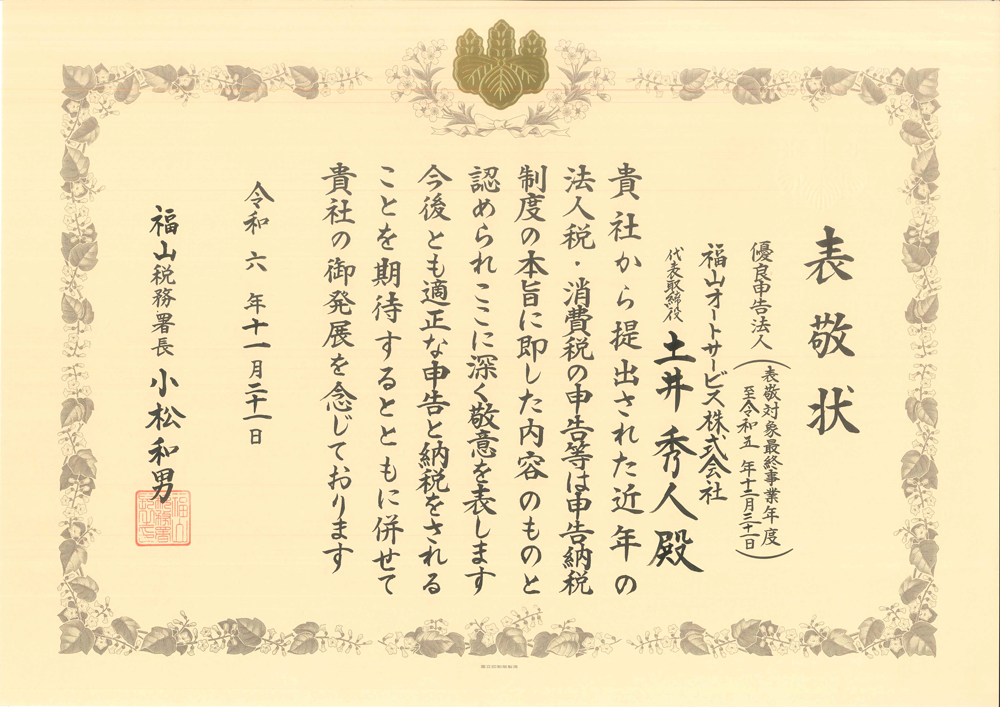 表敬状
優良申告法人
(表敬対象最終事業年度
至令和五年十二月三十一日)
福山オートサービス株式会社
代表取締役 土井秀人殿
貴社から提出された近年の
法人税・消費税の申告等は申告納税
制度の本旨に即した内容のものと
認められここに深く敬意を表します
今後とも適正な申告と納税をされる
ことを期待するとともに併せて
貴社の御発展を念じております
令和六年十一月二十一日
福山税務署長 小松和男